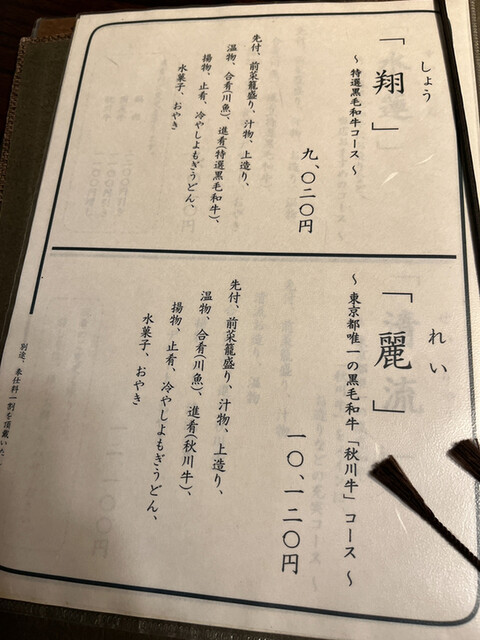 しょう
「翔」
～ 特選黒毛和牛コース ～
九、〇二〇円
先付、前菜籠盛り、汁物、上造り、
温物、合肴(川魚)、進肴(特選黒毛和牛)、
揚物、止肴、冷やしよもぎうどん、
水菓子、おやき
れい
「麗」
～ 東京都唯一の黒毛和牛「秋川牛」コース ～
一〇、一二〇円
先付、前菜籠盛り、汁物、上造り、
温物、合肴(川魚)、進肴(秋川牛)、
揚物、止肴、冷やしよもぎうどん、
水菓子、おやき
別途、奉仕料一割を頂戴いた